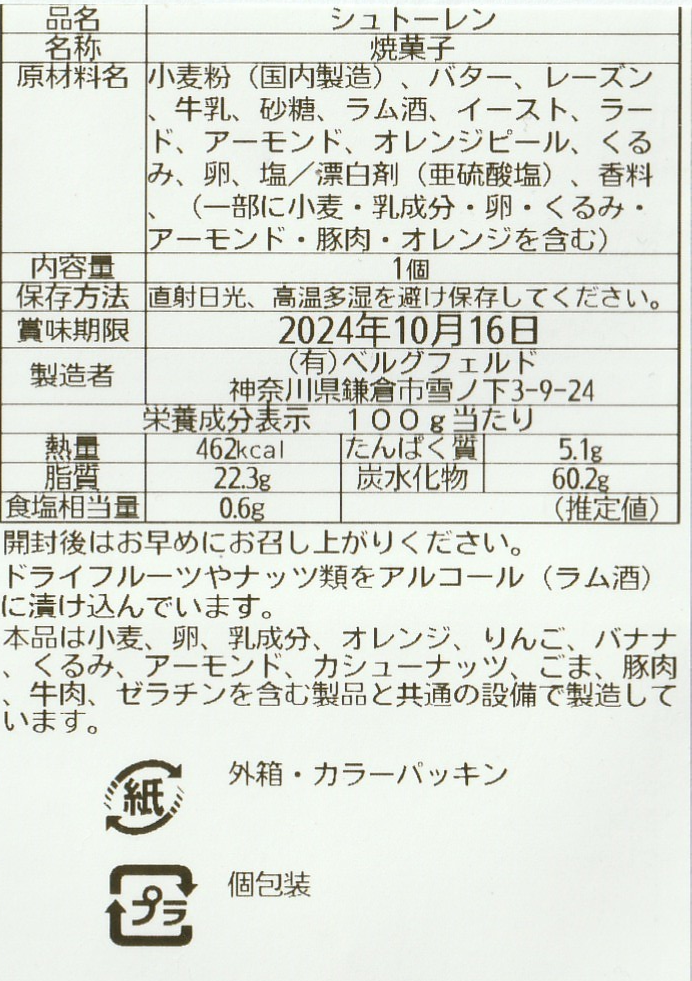 品名 シュトーレン
名称 焼菓子
原材料名 小麦粉（国内製造）、バター、レーズン
、牛乳、砂糖、ラム酒、イースト、ラー
ド、アーモンド、オレンジピール、くる
み、卵、塩／漂白剤（亜硫酸塩）、香料
、（一部に小麦・乳成分・卵・くるみ・
アーモンド・豚肉・オレンジを含む）
内容量 1個
保存方法 直射日光、高温多湿を避け保存してください。
賞味期限 2024年10月16日
製造者 (有)ベルグフェルド
神奈川県鎌倉市雪ノ下3-9-24
栄養成分表示 １００ｇ当たり
熱量 462kcal たんぱく質 5.1g
脂質 22.3g 炭水化物 60.2g
食塩相当量 0.6g （推定値）
開封後はお早めにお召し上がりください。
ドライフルーツやナッツ類をアルコール（ラム酒）
に漬け込んでいます。
本品は小麦、卵、乳成分、オレンジ、りんご、バナナ
、くるみ、アーモンド、カシューナッツ、ごま、豚肉
、牛肉、ゼラチンを含む製品と共通の設備で製造して
います。
紙 外箱・カラーパッキン
プラ 個包装